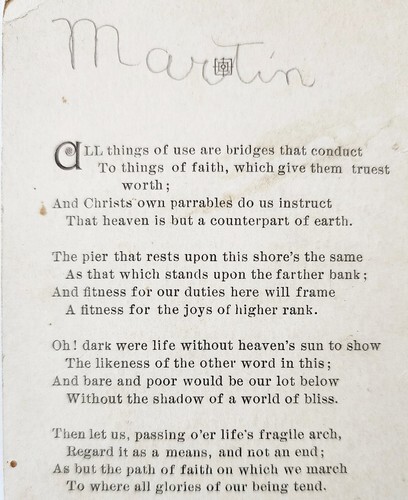 Martin
ALL things of use are bridges that conduct
To things of faith, which give them truest
worth;
And Christs own parrables do us instruct
That heaven is but a counterpart of earth.
The pier that rests upon this shore's the same
As that which stands upon the farther bank;
And fitness for our duties here will frame
A fitness for the joys of higher rank.
Oh! dark were life without heaven's sun to show
The likeness of the other word in this;
And bare and poor would be our lot below
Without the shadow of a world of bliss.
Then let us, passing o'er life's fragile arch,
Regard it as a means, and not an end;
As but the path of faith on which we march
To where all glories of our being tend.